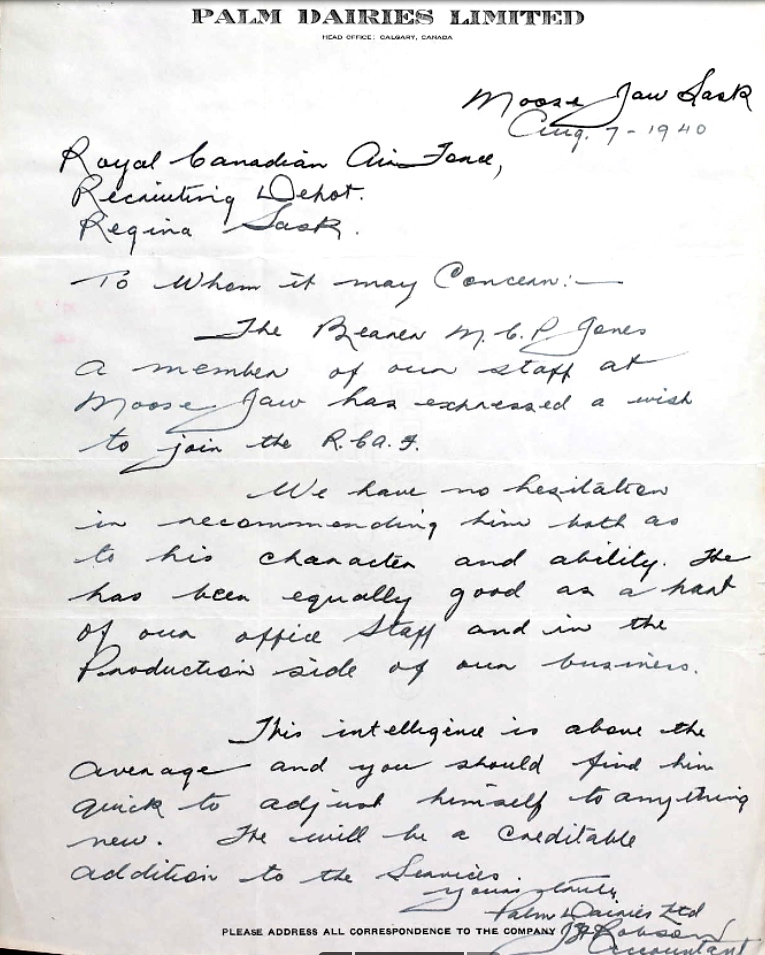 PALM DAIRIES LIMITED
HEAD OFFICE: CALGARY, CANADA
Moose Jaw Sask
Aug. 7 - 1940
Royal Canadian Air Force,
Recruiting Depot.
Regina Sask.
To Whom it may Concern:—
The Bearer M. C. P. Jones
a member of our staff at
Moose Jaw has expressed a wish
to join the R.C.A.F.
We have no hesitation
in recommending him both as
to his character and ability. He
has been equally good as a part
of our office Staff and in the
Production side of our business.
His intelligence is above the
average and you should find him
quick to adjust himself to anything
new. He will be a creditable
addition to the Services.
Yours truly
Palm Dairies Ltd
PLEASE ADDRESS ALL CORRESPONDENCE TO THE COMPANY
Robson
Accountant